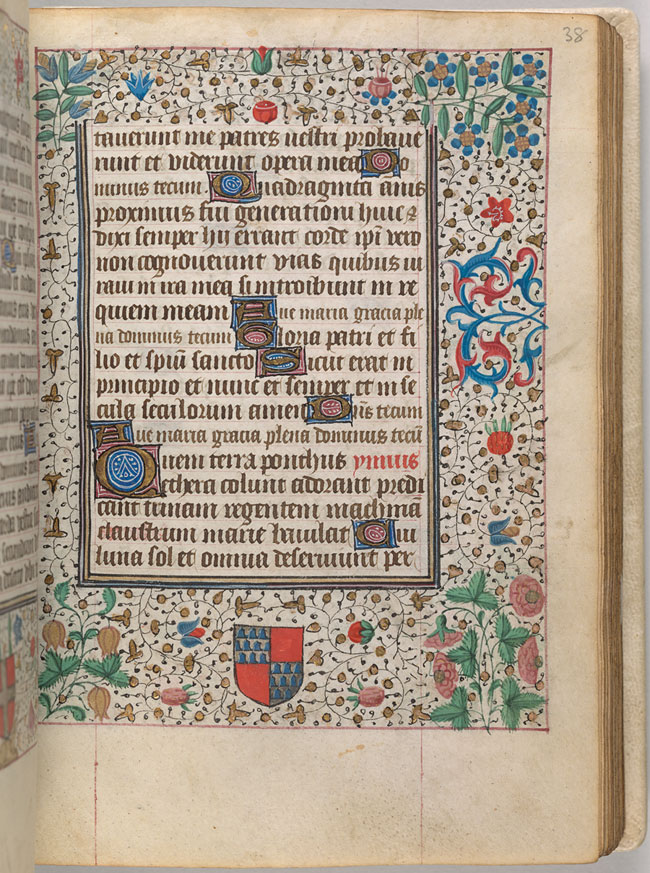 38
tauerunt me patres vestri probaue
runt et viderunt opera mea Do
minus tecum. Quadraginta anis
proximus fui generationi huic &
dixi semper hii errant corde ipi vero
non cognouerunt vias quibus iu
raui in ira mea si introibunt in re
quiem meam Aue maria gracia ple
na dominus tecum Gloria patri et fi
lio et spiu sancto Sicut erat in
principio et nunc et semper et in se
cula seculorum amen Dns tecum
Aue maria gracia plena dominus tecu
Quem terra ponthus ymnus
ethera colunt adorant predi
cant trinam regentem machinam
claustrum marie baiulat Cui
luna sol et omnia deseruiunt per